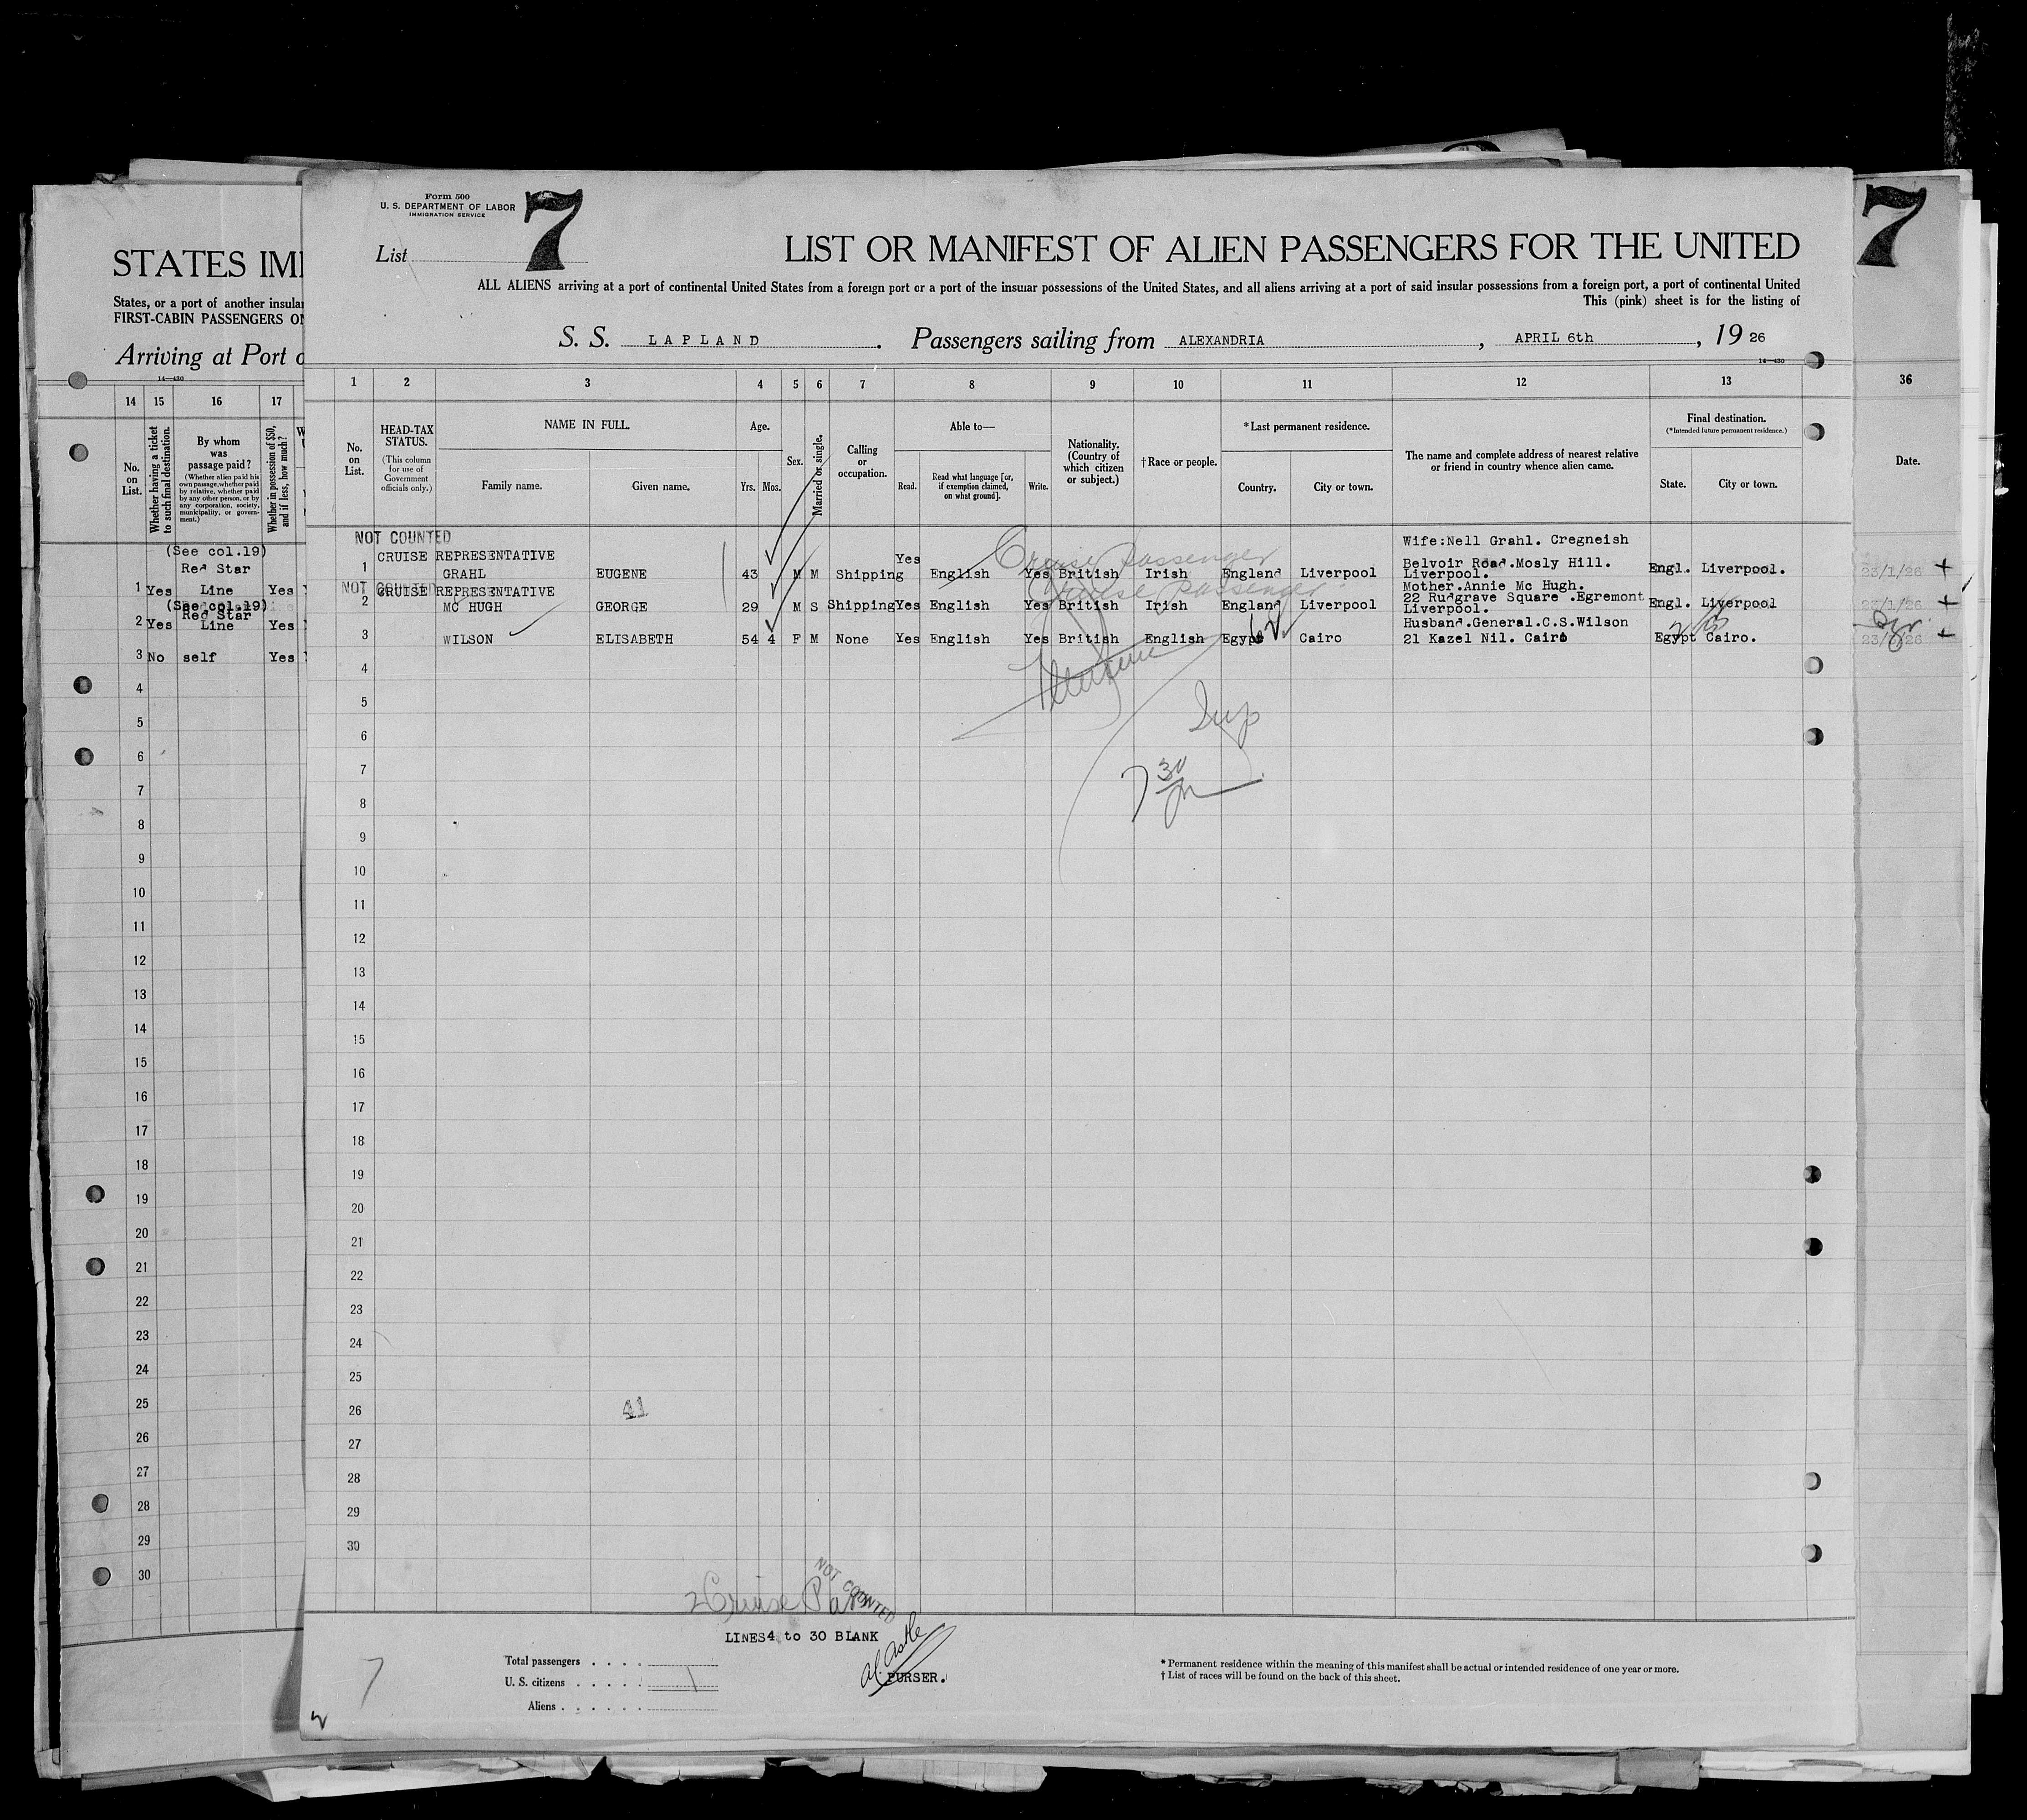 Form 500
U. S. DEPARTMENT OF LABOR
IMMIGRATION SERVICE
List 7
LIST OR MANIFEST OF ALIEN PASSENGERS FOR THE UNITED
ALL ALIENS arriving at a port of continental United States from a foreign port or a port of the insular possessions of the United States, and all aliens arriving at a port of said insular possessions from a foreign port, a port of continental United
This (pink) sheet is for the listing of
S. S. LAPLAND. Passengers sailing from ALEXANDRIA, APRIL 6th, 19 26
14—430
1 2 3 4 5 6 7 8 9 10 11 12 13
No. on List.
HEAD-TAX STATUS.
(This column for use of Government officials only.)
NAME IN FULL.
Family name. Given name.
Age.
Yrs. Mos.
Sex.
Married or single.
Calling or occupation.
Able to—
Read. Read what language [or, if exemption claimed, on what ground]. Write.
Nationality. (Country of which citizen or subject.)
†Race or people.
*Last permanent residence.
Country. City or town.
The name and complete address of nearest relative or friend in country whence alien came.
Final destination.
(*Intended future permanent residence.)
State. City or town.
NOT COUNTED
CRUISE REPRESENTATIVE
Cruise Passenger
Wife:Nell Grahl. Cregneish
Belvoir Road.Mosly Hill.
1 GRAHL EUGENE 43 M M Shipping Yes English Yes British Irish England Liverpool Liverpool. Engl. Liverpool.
NOT COUNTED
CRUISE REPRESENTATIVE
Cruise Passenger
Mother.Annie Mc Hugh.
22 Rudgrave Square .Egremont
2 MC HUGH GEORGE 29 M S Shipping Yes English Yes British Irish England Liverpool Liverpool. Engl. Liverpool
Husband.General.C.S.Wilson
3 WILSON ELISABETH 54 4 F M None Yes English Yes British English Egypt Cairo 21 Kazel Nil. Cairo Egypt Cairo.
4
5
6
7
7 30
8
9
10
11
12
13
14
15
16
17
18
19
20
21
22
23
24
25
26
41
27
28
29
30
2 Cruise Pas
NOT COUNTED
LINES4 to 30 BLANK
PURSER.
7
Total passengers
U. S. citizens 1
Aliens
* Permanent residence within the meaning of this manifest shall be actual or intended residence of one year or more.
† List of races will be found on the back of this sheet.
STATES IMI
States, or a port of another insular
FIRST-CABIN PASSENGERS ON
Arriving at Port o
14—430
14 15 16 17
No. on List.
Whether having a ticket to such final destination.
By whom was passage paid?
(Whether alien paid his own passage, whether paid by relative, whether paid by any other person, or by any corporation, society, municipality, or government.)
Whether in possession of $50, and if less, how much?
(See col.19)
Red Star
1 Yes Line Yes
(See col.19)
Red Star
2 Yes Line Yes
3 No self Yes
4
5
6
7
8
9
10
11
12
13
14
15
16
17
18
19
20
21
22
23
24
25
26
27
28
29
30
7
36
Date.
23/1/26 +
23/1/26 +